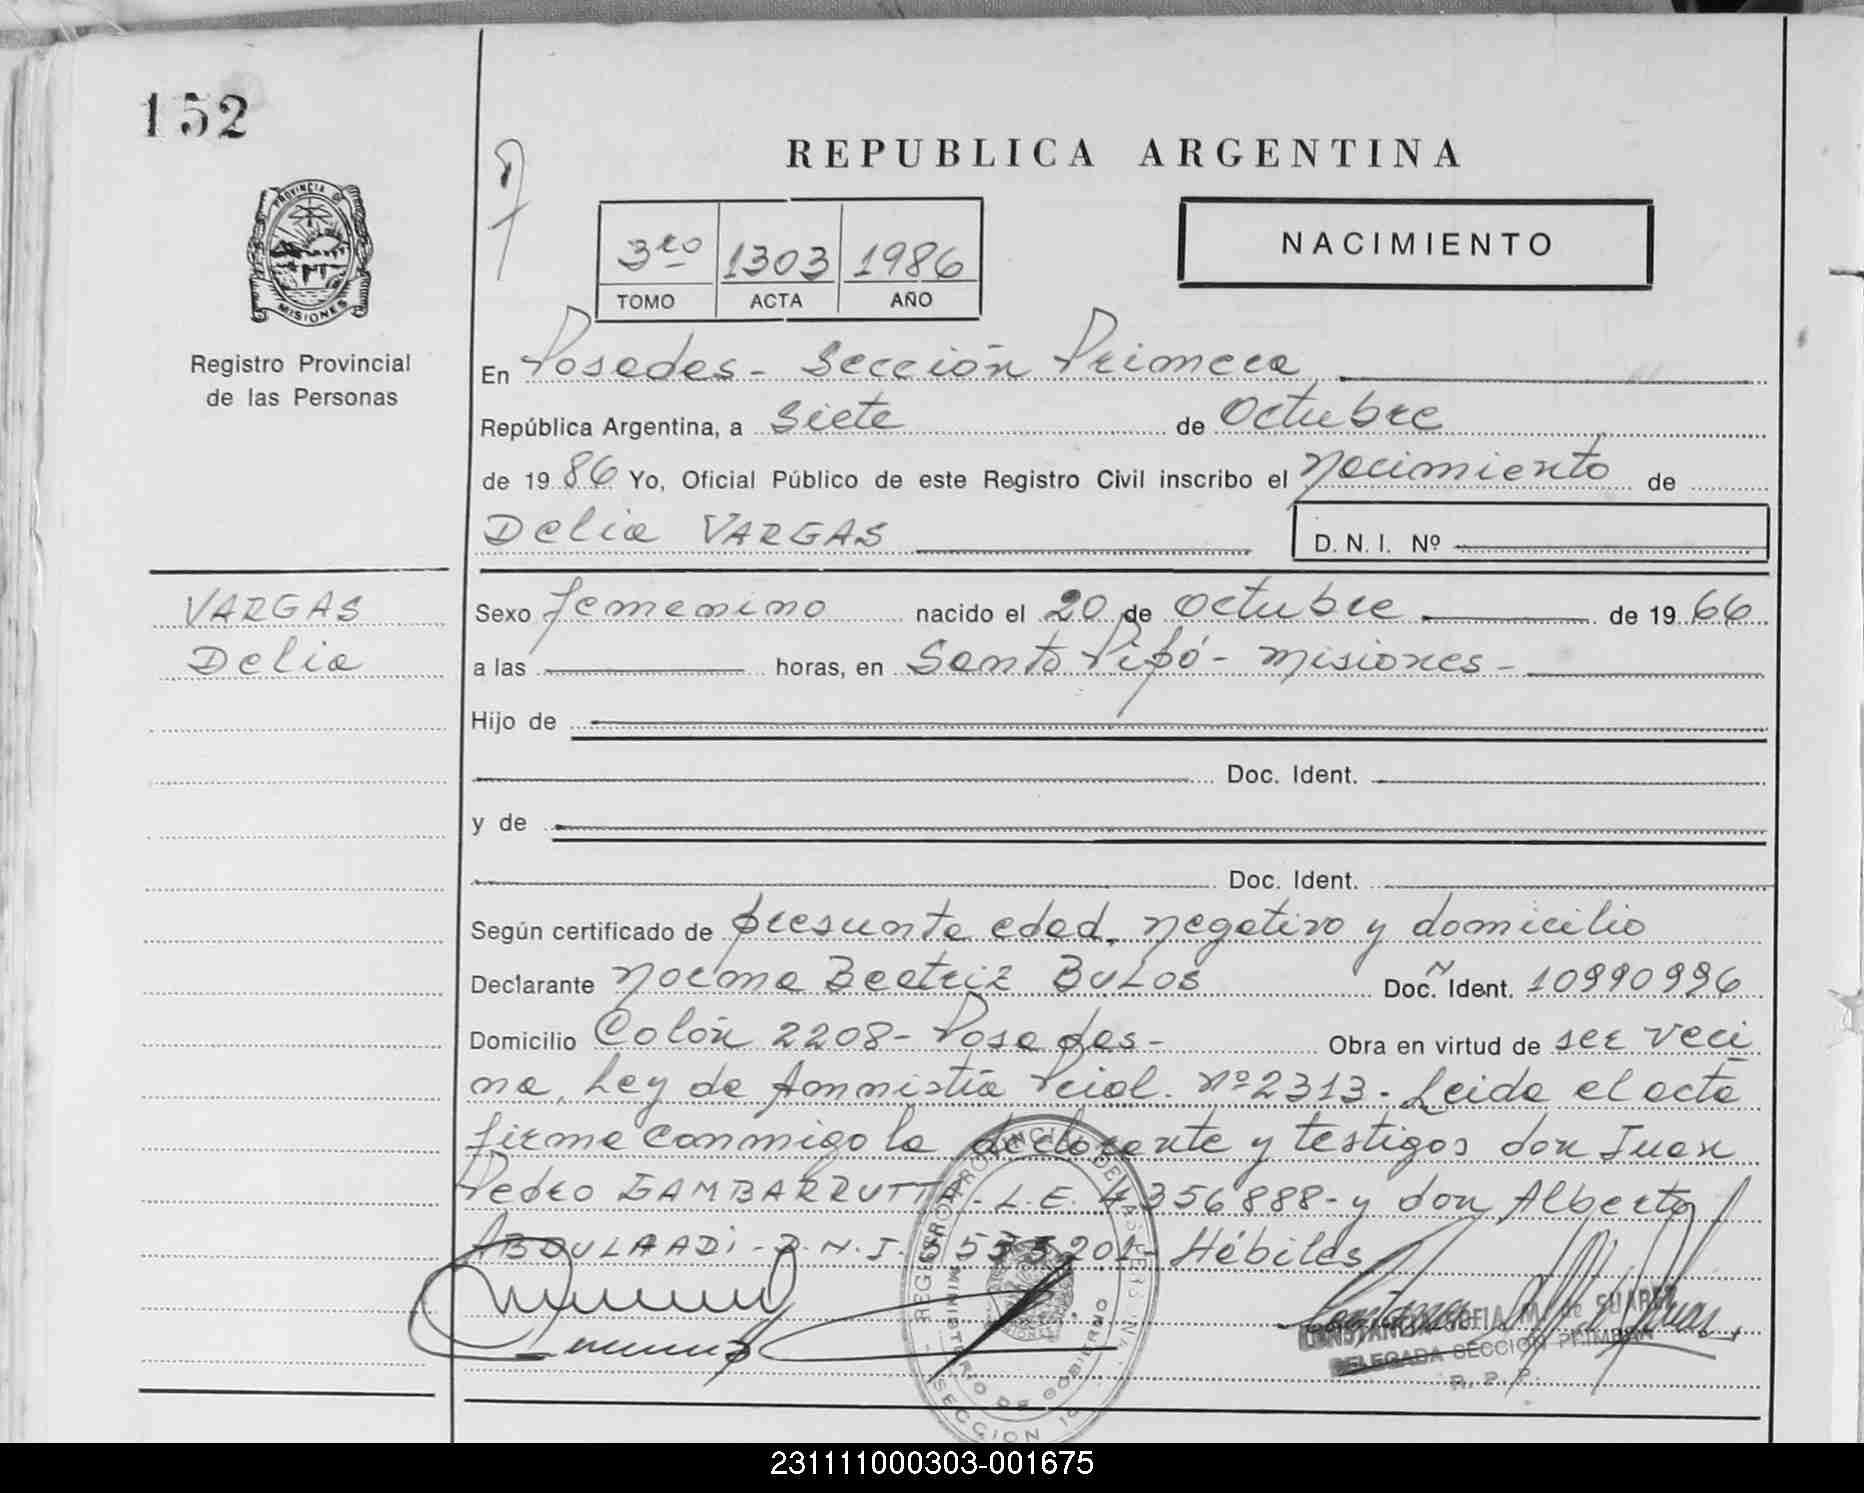 152
REPUBLICA ARGENTINA
PROVINCIA DE
MISIONES
Registro Provincial
de las Personas
3ro 1303 1986
TOMO ACTA AÑO
NACIMIENTO
En Posadas - Sección Primera
República Argentina, a siete de Octubre
de 1986 Yo, Oficial Público de este Registro Civil inscribo el nacimiento de
Delia VARGAS
D. N. I. Nº
VARGAS
Delia
Sexo femenino nacido el 20 de octubre de 1966
a las horas, en Santo Pipó - Misiones -
Hijo de
Doc. Ident.
y de
Doc. Ident.
Según certificado de presunta edad, negativo y domicilio
Declarante Norma Beatriz BULOS Doc. Ident. 10990996
Domicilio Colón 2208 - Posadas - Obra en virtud de ser veci
na, Ley de Amnistía Pcial. nº 2313 - Leida el acta
firma conmigo la declarante y testigos don Juan
Pedro - L.E. 4356888 - y don Alberto
ABDULAADI - D.N.I. - Hábiles
REGISTRO PROVINCIAL DE LAS PERSONAS
MINISTERIO DE GOBIERNO
SECCION
CONSTANCIA SOFIA M. de SUAREZ
DELEGADA SECCION PRIMERA
R. P. P.
231111000303-001675